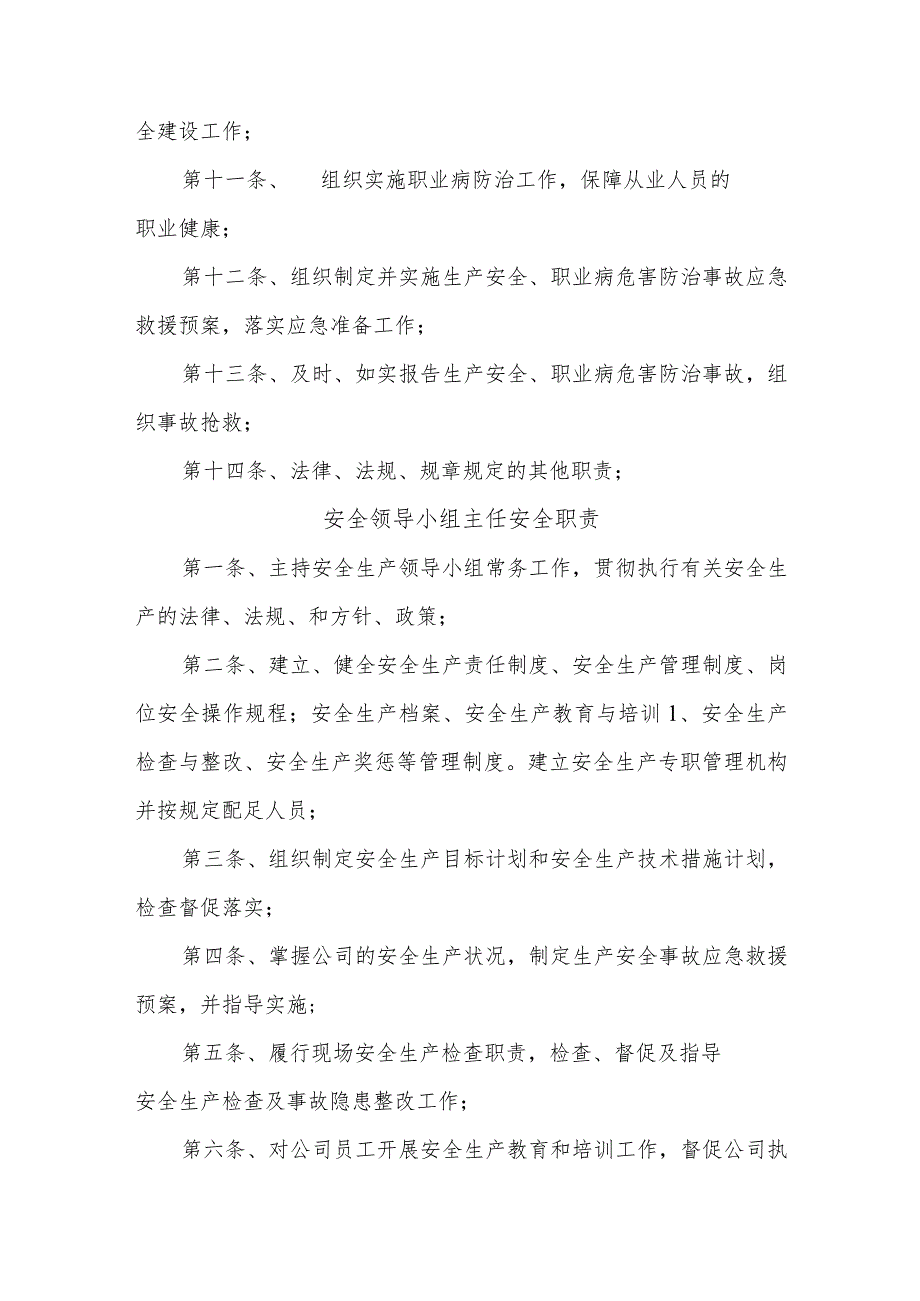 全建设工作；
第十一条、 组织实施职业病防治工作，保障从业人员的
职业健康；
第十二条、组织制定并实施生产安全、职业病危害防治事故应急
救援预案，落实应急准备工作；
第十三条、及时、如实报告生产安全、职业病危害防治事故，组
织事故抢救；
第十四条、法律、法规、规章规定的其他职责；
安全领导小组主任安全职责
第一条、主持安全生产领导小组常务工作，贯彻执行有关安全生
产的法律、法规、和方针、政策；
第二条、建立、健全安全生产责任制度、安全生产管理制度、岗
位安全操作规程；安全生产档案、安全生产教育与培训1、安全生产
检查与整改、安全生产奖惩等管理制度。建立安全生产专职管理机构
并按规定配足人员；
第三条、组织制定安全生产目标计划和安全生产技术措施计划，
检查督促落实；
第四条、掌握公司的安全生产状况，制定生产安全事故应急救援
预案，并指导实施;
第五条、履行现场安全生产检查职责，检查、督促及指导
安全生产检查及事故隐患整改工作；
第六条、对公司员工开展安全生产教育和培训工作，督促公司执